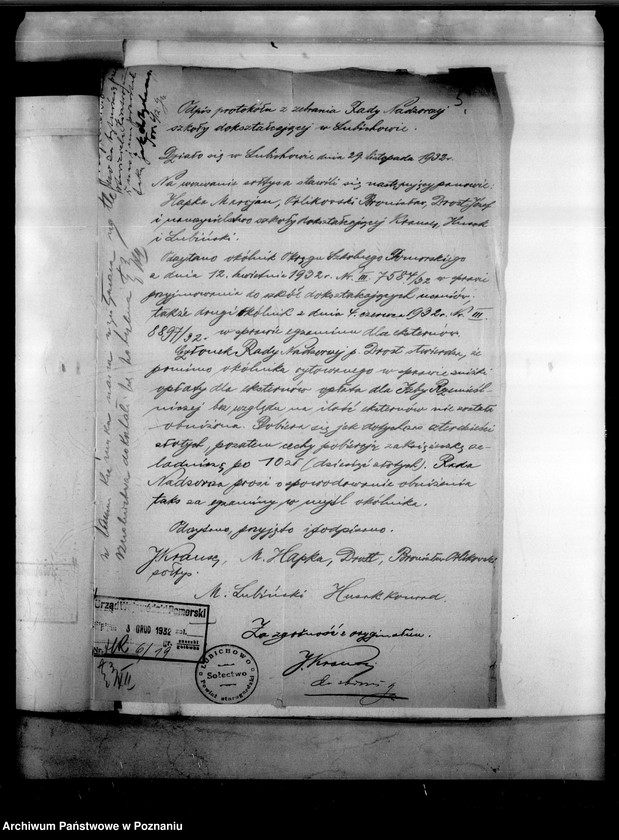 5.
Odpis protokółu z zebrania Rady Nadzorczej
szkoły dokształcającej w Lubichowie.
Działo się w Lubichowie dnia 29. listopada 1932 r.
Na wezwanie sołtysa stawili się następujący panowie:
Hapka Marcjan, Orlikowski Bronisław, Drost Józef
i nauczycielstwo szkoły dokształcającej Krause, Husak
i Lubiński.
Odczytano okólnik Okręgu Szkolnego Pomorskiego
z dnia 12. kwietnia 1932 r. Nr. III. 7584/32 w sprawie
przyjmowania do szkół dokształcających uczniów,
także drugi okólnik z dnia 4. czerwca 1932 r. Nr. III.
8897/32. w sprawie egzaminu dla eksternów.
Członek Rady Nadzorczej p. Drost stwierdza, że
pomimo okólnika cytowanego w sprawie zniżki
opłaty dla eksternów opłata dla Izby Rzemieśl-
niczej bez względu na ilość eksternów nie została
obniżona. Pobiera się jak dotychczas czterdzieści
złotych, pozatem cechy pobierają za książeczkę cze-
ladniczą po 10 zł (dziesięć złotych). Rada
Nadzorcza prosi o spowodowanie obniżenia
taks za egzaminy w myśl okólnika.
Odczytano, przyjęto i podpisano.
J Krause, M. Hapka, Drost, Bronisław Orlikowski
sołtys.
M. Lubiński Husak Konrad
Za zgodność z oryginałem.
J. Krause
Urząd Wojewódzki Pomorski
3 GRUD 1932
Nr. 6/19
LUBICHOWO
Sołectwo
Powiat starogardzki
Archiwum Państwowe w Poznaniu